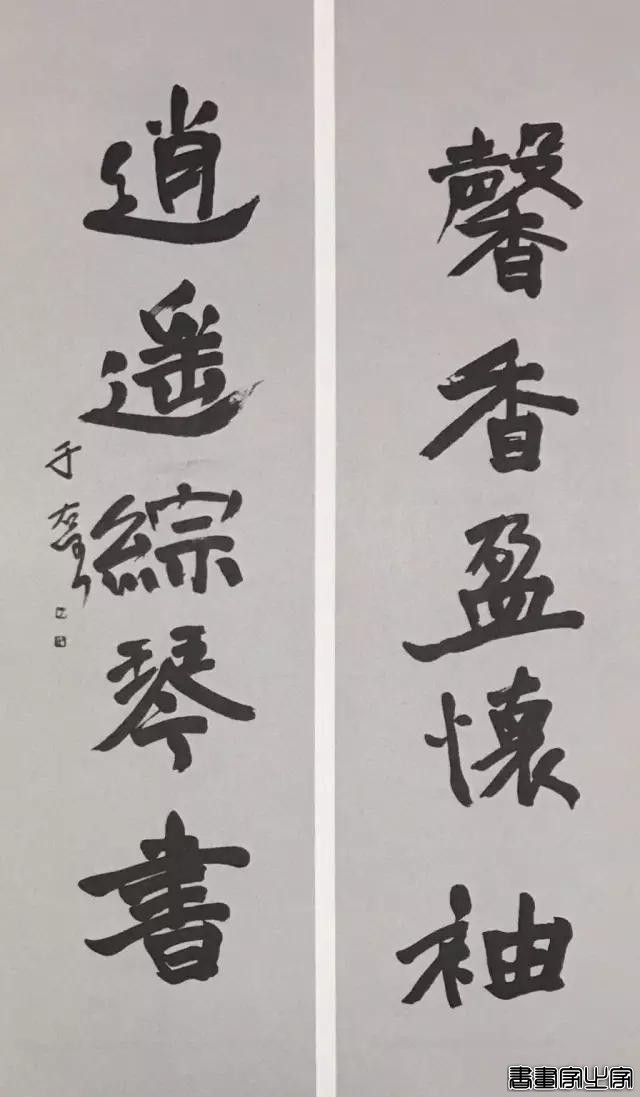 馨香盈懷袖
逍遥綜琴書
于右任
書畫家之家